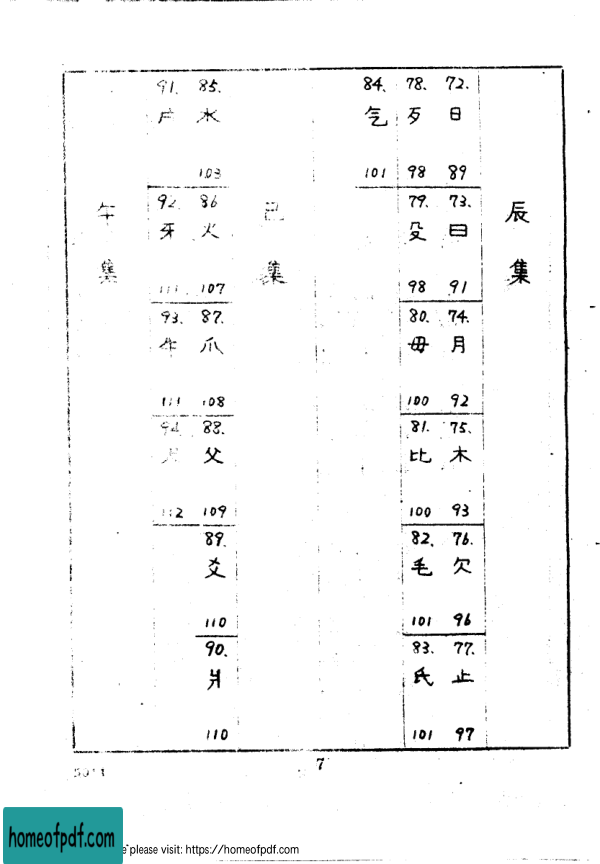 辰集
72. 日 89
73. 曰 91
74. 月 92
75. 木 93
76. 欠 96
77. 止 97
78. 歹 98
79. 殳 98
80. 毋 100
81. 比 100
82. 毛 101
83. 氏 101
84. 气 101
巳集
85. 水 103
86 火 107
87. 爪 108
88. 父 109
89. 爻 110
90. 爿 110
91. 片
92. 牙 111
93. 牛 111
94. 112
午集
7
homeofpdf.com
please visit: https://homeofpdf.com